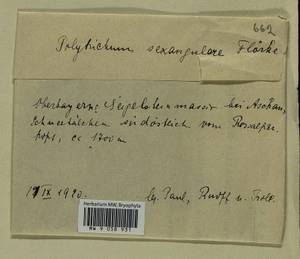 662
Polytrichum sexangulare Flörke
Oberbayern: Geigelsteinmassiv bei Aschau,
Schneetälchen südöstlich vom Rossalpen-
kopf, ca 1700 m
IX 1920. lg. Paul, Ruoff u.
Herbarium MW, Bryophyta
MW 9 058 931